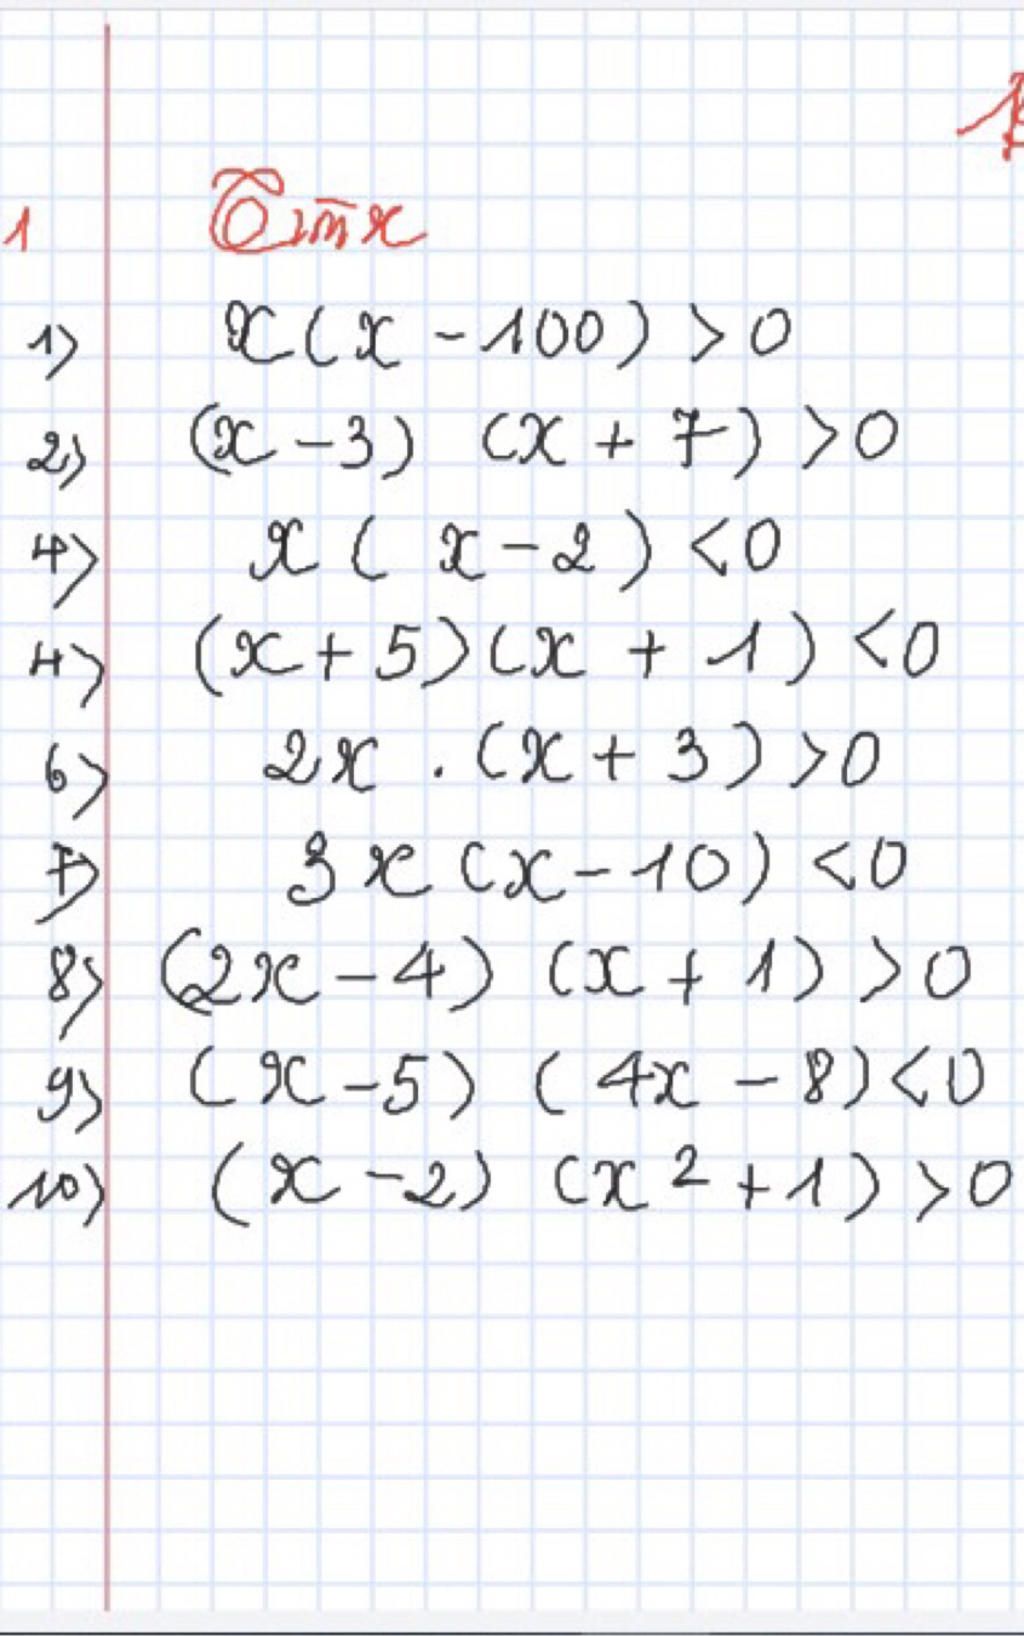 1 Tìm x
1) x(x - 100) > 0
2) (x - 3) (x + 7) > 0
4) x ( x - 2 ) < 0
4) (x + 5)(x + 1) < 0
6) 2x . (x + 3) > 0
7) 3x (x - 10) < 0
8) (2x - 4) (x + 1) > 0
9) (x - 5) (4x - 8) < 0
10) (x - 2) (x² + 1) > 0